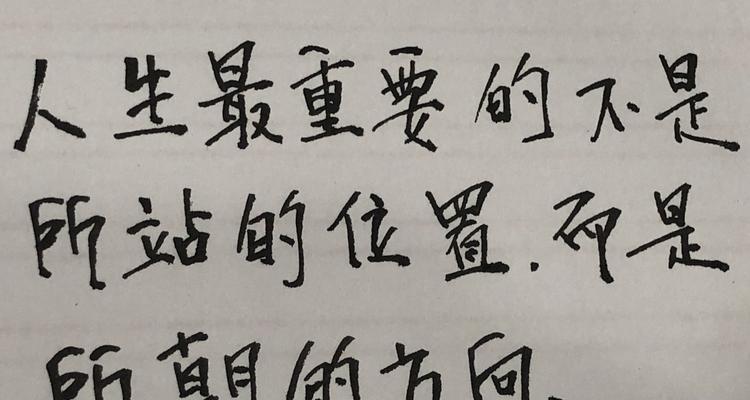 人生最重要的不是
所站的位置.而是
所朝的方向.